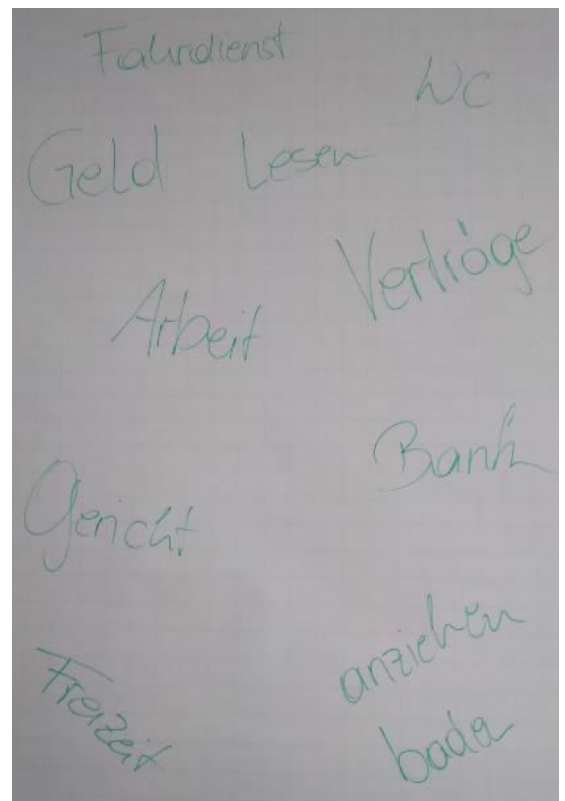 Fahrdienst
WC
Geld Lesen
Verträge
Arbeit
Bank
Gericht
anziehen
Freizeit
baden